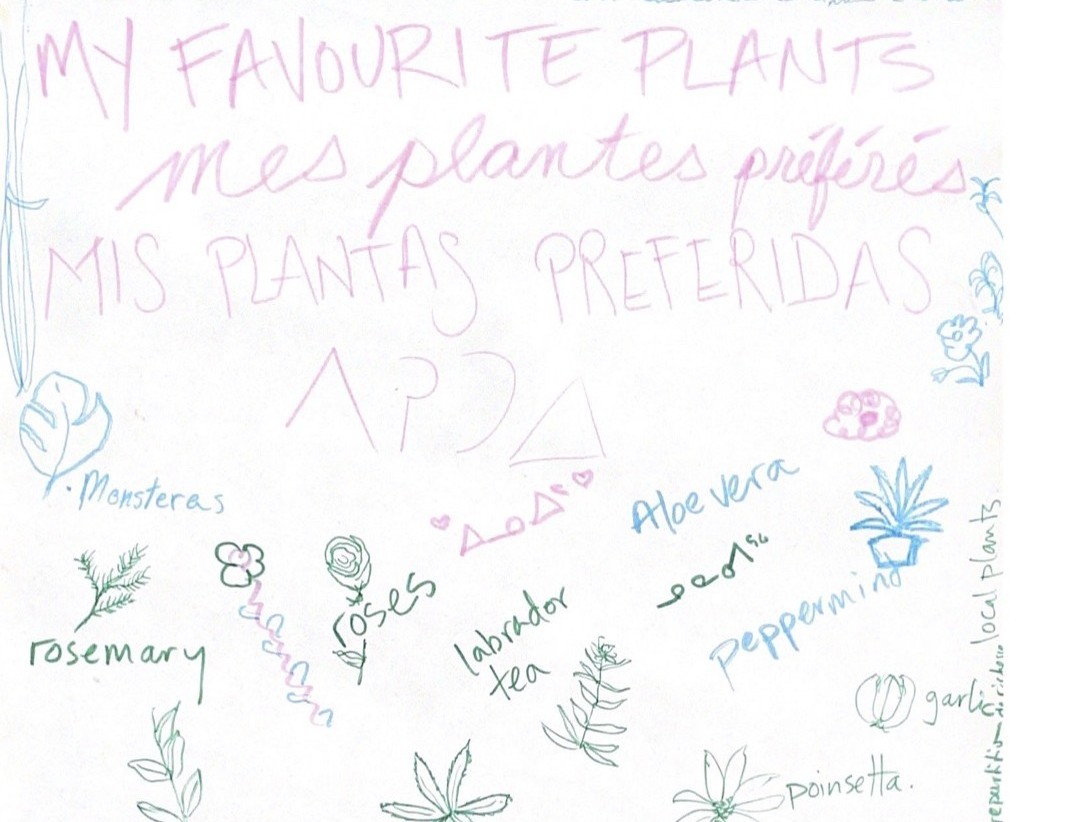 MY FAVOURITE PLANTS
mes plantes préférés
MIS PLANTAS PREFERIDAS
ᐱᑭᑐᐃ
Monsteras
Aloe vera
roses
rosemary
labrador
tea
peppermind
garlic
poinsetta.
local plants